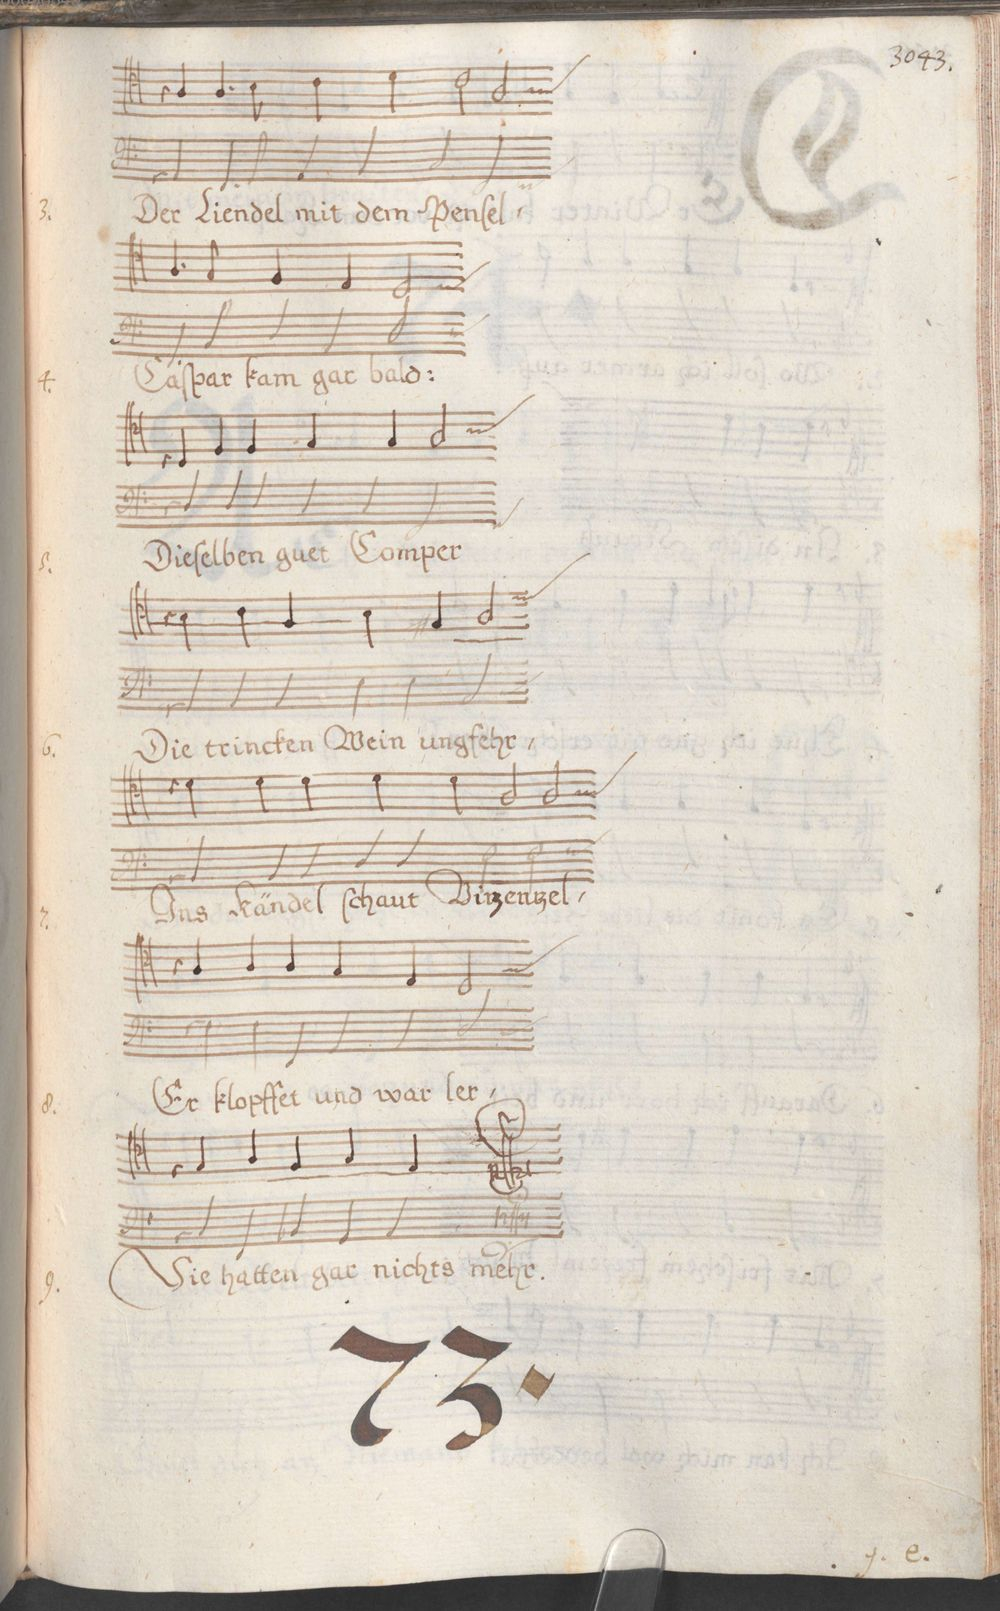 3043.
3. Der Liendel mit dem Pensel,
4. Caspar kam gar bald:
5. Dieselben guet Comper
6. Die trincken Wein ungfehr,
7. Ins Kändel schaut Vizenzel,
8. Er klopffet und war ler,
9. Sie hatten gar nichts mehr.
73.